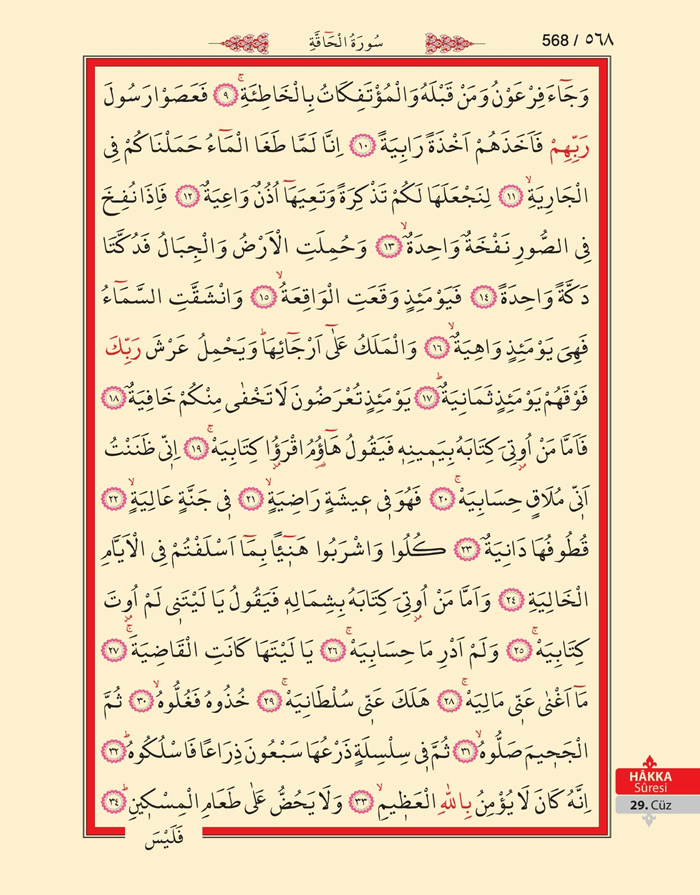 سُورَةُ الْحَاقَّةِ
568 / ٥٦٨
وَجَٓاءَ فِرْعَوْنُ وَمَنْ قَبْلَهُ وَالْمُؤْتَفِكَاتُ بِالْخَاطِئَةِۚ ﴿٩﴾ فَعَصَوْا رَسُولَ
رَبِّهِمْ فَاَخَذَهُمْ اَخْذَةً رَابِيَةً ﴿١٠﴾ اِنَّا لَمَّا طَغَا الْمَٓاءُ حَمَلْنَاكُمْ فِي
الْجَارِيَةِۙ ﴿١١﴾ لِنَجْعَلَهَا لَكُمْ تَذْكِرَةً وَتَعِيَهَٓا اُذُنٌ وَاعِيَةٌ ﴿١٢﴾ فَاِذَا نُفِخَ
فِي الصُّورِ نَفْخَةٌ وَاحِدَةٌۙ ﴿١٣﴾ وَحُمِلَتِ الْاَرْضُ وَالْجِبَالُ فَدُكَّتَا
دَكَّةً وَاحِدَةً ﴿١٤﴾ فَيَوْمَئِذٍ وَقَعَتِ الْوَاقِعَةُۙ ﴿١٥﴾ وَانْشَقَّتِ السَّمَٓاءُ
فَهِيَ يَوْمَئِذٍ وَاهِيَةٌۙ ﴿١٦﴾ وَالْمَلَكُ عَلٰٓى اَرْجَٓائِهَاۜ وَيَحْمِلُ عَرْشَ رَبِّكَ
فَوْقَهُمْ يَوْمَئِذٍ ثَمَانِيَةٌۜ ﴿١٧﴾ يَوْمَئِذٍ تُعْرَضُونَ لَا تَخْفٰى مِنْكُمْ خَافِيَةٌ ﴿١٨﴾
فَاَمَّا مَنْ اُو۫تِيَ كِتَابَهُ بِيَمِينِه۪ فَيَقُولُ هَٓاؤُ۬مُ اقْرَؤُ۫ا كِتَابِيَهْۚ ﴿١٩﴾ اِنّ۪ي ظَنَنْتُ
اَنّ۪ي مُلَاقٍ حِسَابِيَهْۚ ﴿٢٠﴾ فَهُوَ ف۪ي ع۪يشَةٍ رَاضِيَةٍۙ ﴿٢١﴾ ف۪ي جَنَّةٍ عَالِيَةٍۙ ﴿٢٢﴾
قُطُوفُهَا دَانِيَةٌ ﴿٢٣﴾ كُلُوا وَاشْرَبُوا هَن۪ٓيـًٔا بِمَٓا اَسْلَفْتُمْ فِي الْاَيَّامِ
الْخَالِيَةِ ﴿٢٤﴾ وَاَمَّا مَنْ اُو۫تِيَ كِتَابَهُ بِشِمَالِه۪ فَيَقُولُ يَا لَيْتَن۪ي لَمْ اُو۫تَ
كِتَابِيَهْۚ ﴿٢٥﴾ وَلَمْ اَدْرِ مَا حِسَابِيَهْۚ ﴿٢٦﴾ يَا لَيْتَهَا كَانَتِ الْقَاضِيَةَۚ ﴿٢٧﴾
مَٓا اَغْنٰى عَنّ۪ي مَالِيَهْۚ ﴿٢٨﴾ هَلَكَ عَنّ۪ي سُلْطَانِيَهْۚ ﴿٢٩﴾ خُذُوهُ فَغُلُّوهُۙ ﴿٣٠﴾ ثُمَّ
الْجَح۪يمَ صَلُّوهُۙ ﴿٣١﴾ ثُمَّ ف۪ي سِلْسِلَةٍ ذَرْعُهَا سَبْعُونَ ذِرَاعًا فَاسْلُكُوهُۜ ﴿٣٢﴾
اِنَّهُ كَانَ لَا يُؤْمِنُ بِاللّٰهِ الْعَظ۪يمِۙ ﴿٣٣﴾ وَلَا يَحُضُّ عَلٰى طَعَامِ الْمِسْك۪ينِۜ ﴿٣٤﴾
فَلَيْسَ
HÂKKA
Sûresi
29. Cüz